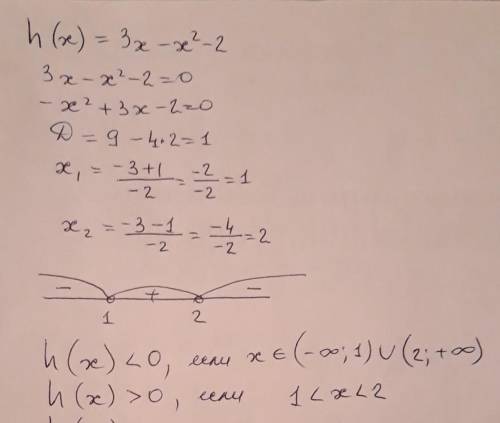 h(x) = 3x - x² - 2
3x - x² - 2 = 0
- x² + 3x - 2 = 0
D = 9 - 4·2 = 1
x₁ = (-3+1)/(-2) = (-2)/(-2) = 1
x₂ = (-3-1)/(-2) = (-4)/(-2) = 2
- + -
1 2
h(x) < 0, если x ∈ (-∞; 1) ∪ (2; +∞)
h(x) > 0, если 1 < x < 2